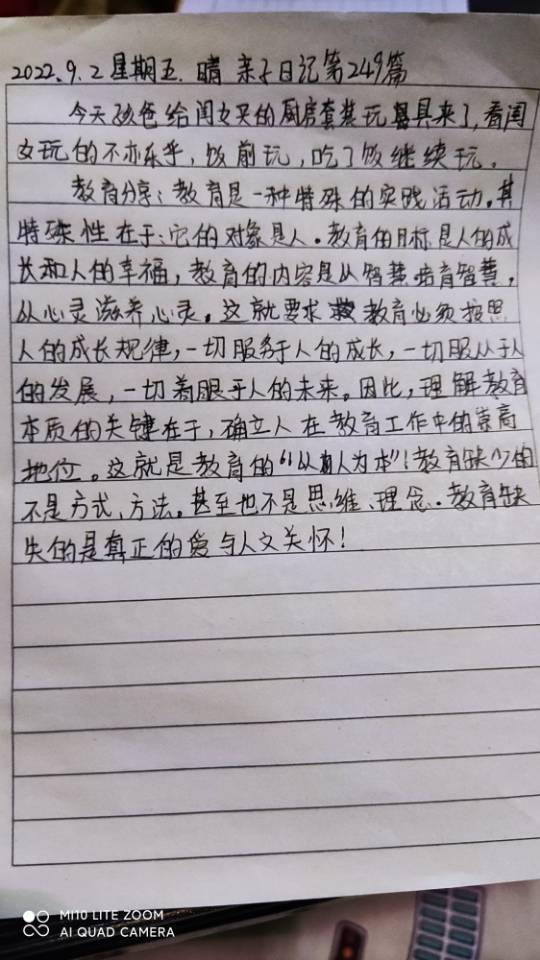 2022.9.2 星期五. 晴 亲子日记第249篇
今天孩爸给闺女买的厨房套装玩具来了,看闺
女玩的不亦乐乎,饭前玩,吃了饭继续玩。
教育分享:教育是一种特殊的实践活动。其
特殊性在于:它的对象是人。教育的目标是人的成
长和人的幸福,教育的内容是从智慧培育智慧,
从心灵滋养心灵。这就要求教育必须按照
人的成长规律,一切服务于人的成长,一切服从于人
的发展,一切着眼于人的未来。因此,理解教育
本质的关键在于,确立人在教育工作中的崇高
地位。这就是教育的“以人为本”!教育缺少的
不是方式、方法。甚至也不是思维、理念。教育缺
失的是真正的爱与人文关怀!
MI10 LITE ZOOM
AI QUAD CAMERA